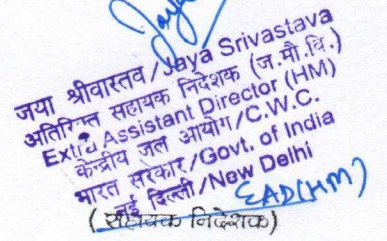 Jaya
जया श्रीवास्तव/Jaya Srivastava
अतिरिक्त सहायक निदेशक (ज.मौ.वि.)
Extra Assistant Director (HM)
केन्द्रीय जल आयोग/C.W.C.
भारत सरकार/Govt. of India
नई दिल्ली/New Delhi
EAD(HM)
(सहायक निदेशक)